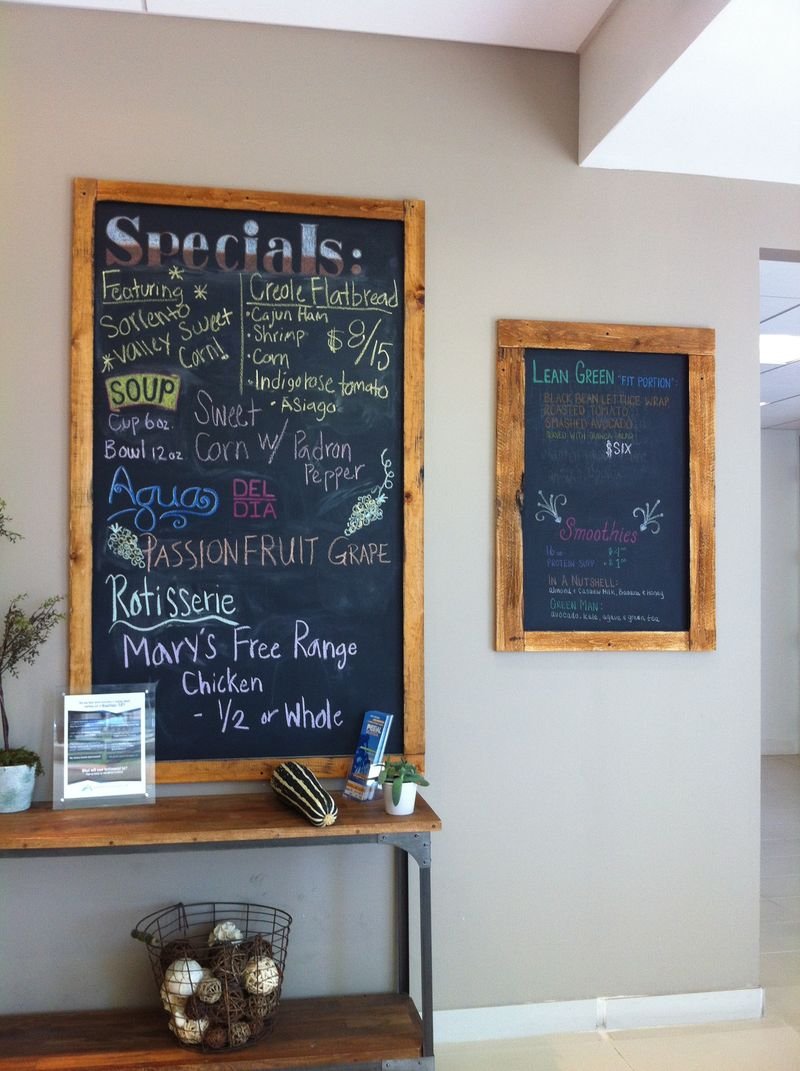 Specials:
Featuring
Sorrento
Valley Sweet
Corn!
Creole Flatbread
• Cajun Ham
• Shrimp
• Corn
• Indigo rose tomato
• Asiago
$8/15
SOUP
Cup 6 oz.
Bowl 12 oz
Sweet
Corn w/ Padron
Pepper
Agua DEL
DIA
PASSIONFRUIT GRAPE
Rotisserie
Mary's Free Range
Chicken
- 1/2 or Whole
LEAN GREEN "FIT PORTION":
BLACK BEAN LETTUCE WRAP
ROASTED TOMATO,
SMASHED AVOCADO
SERVED WITH QUINOA SALAD
$SIX
Smoothies
16 oz
PROTEIN SUPP
IN A NUTSHELL:
Almond + Cashew Milk, Banana & Honey
GREEN MAN:
avocado, kale, agave & green tea